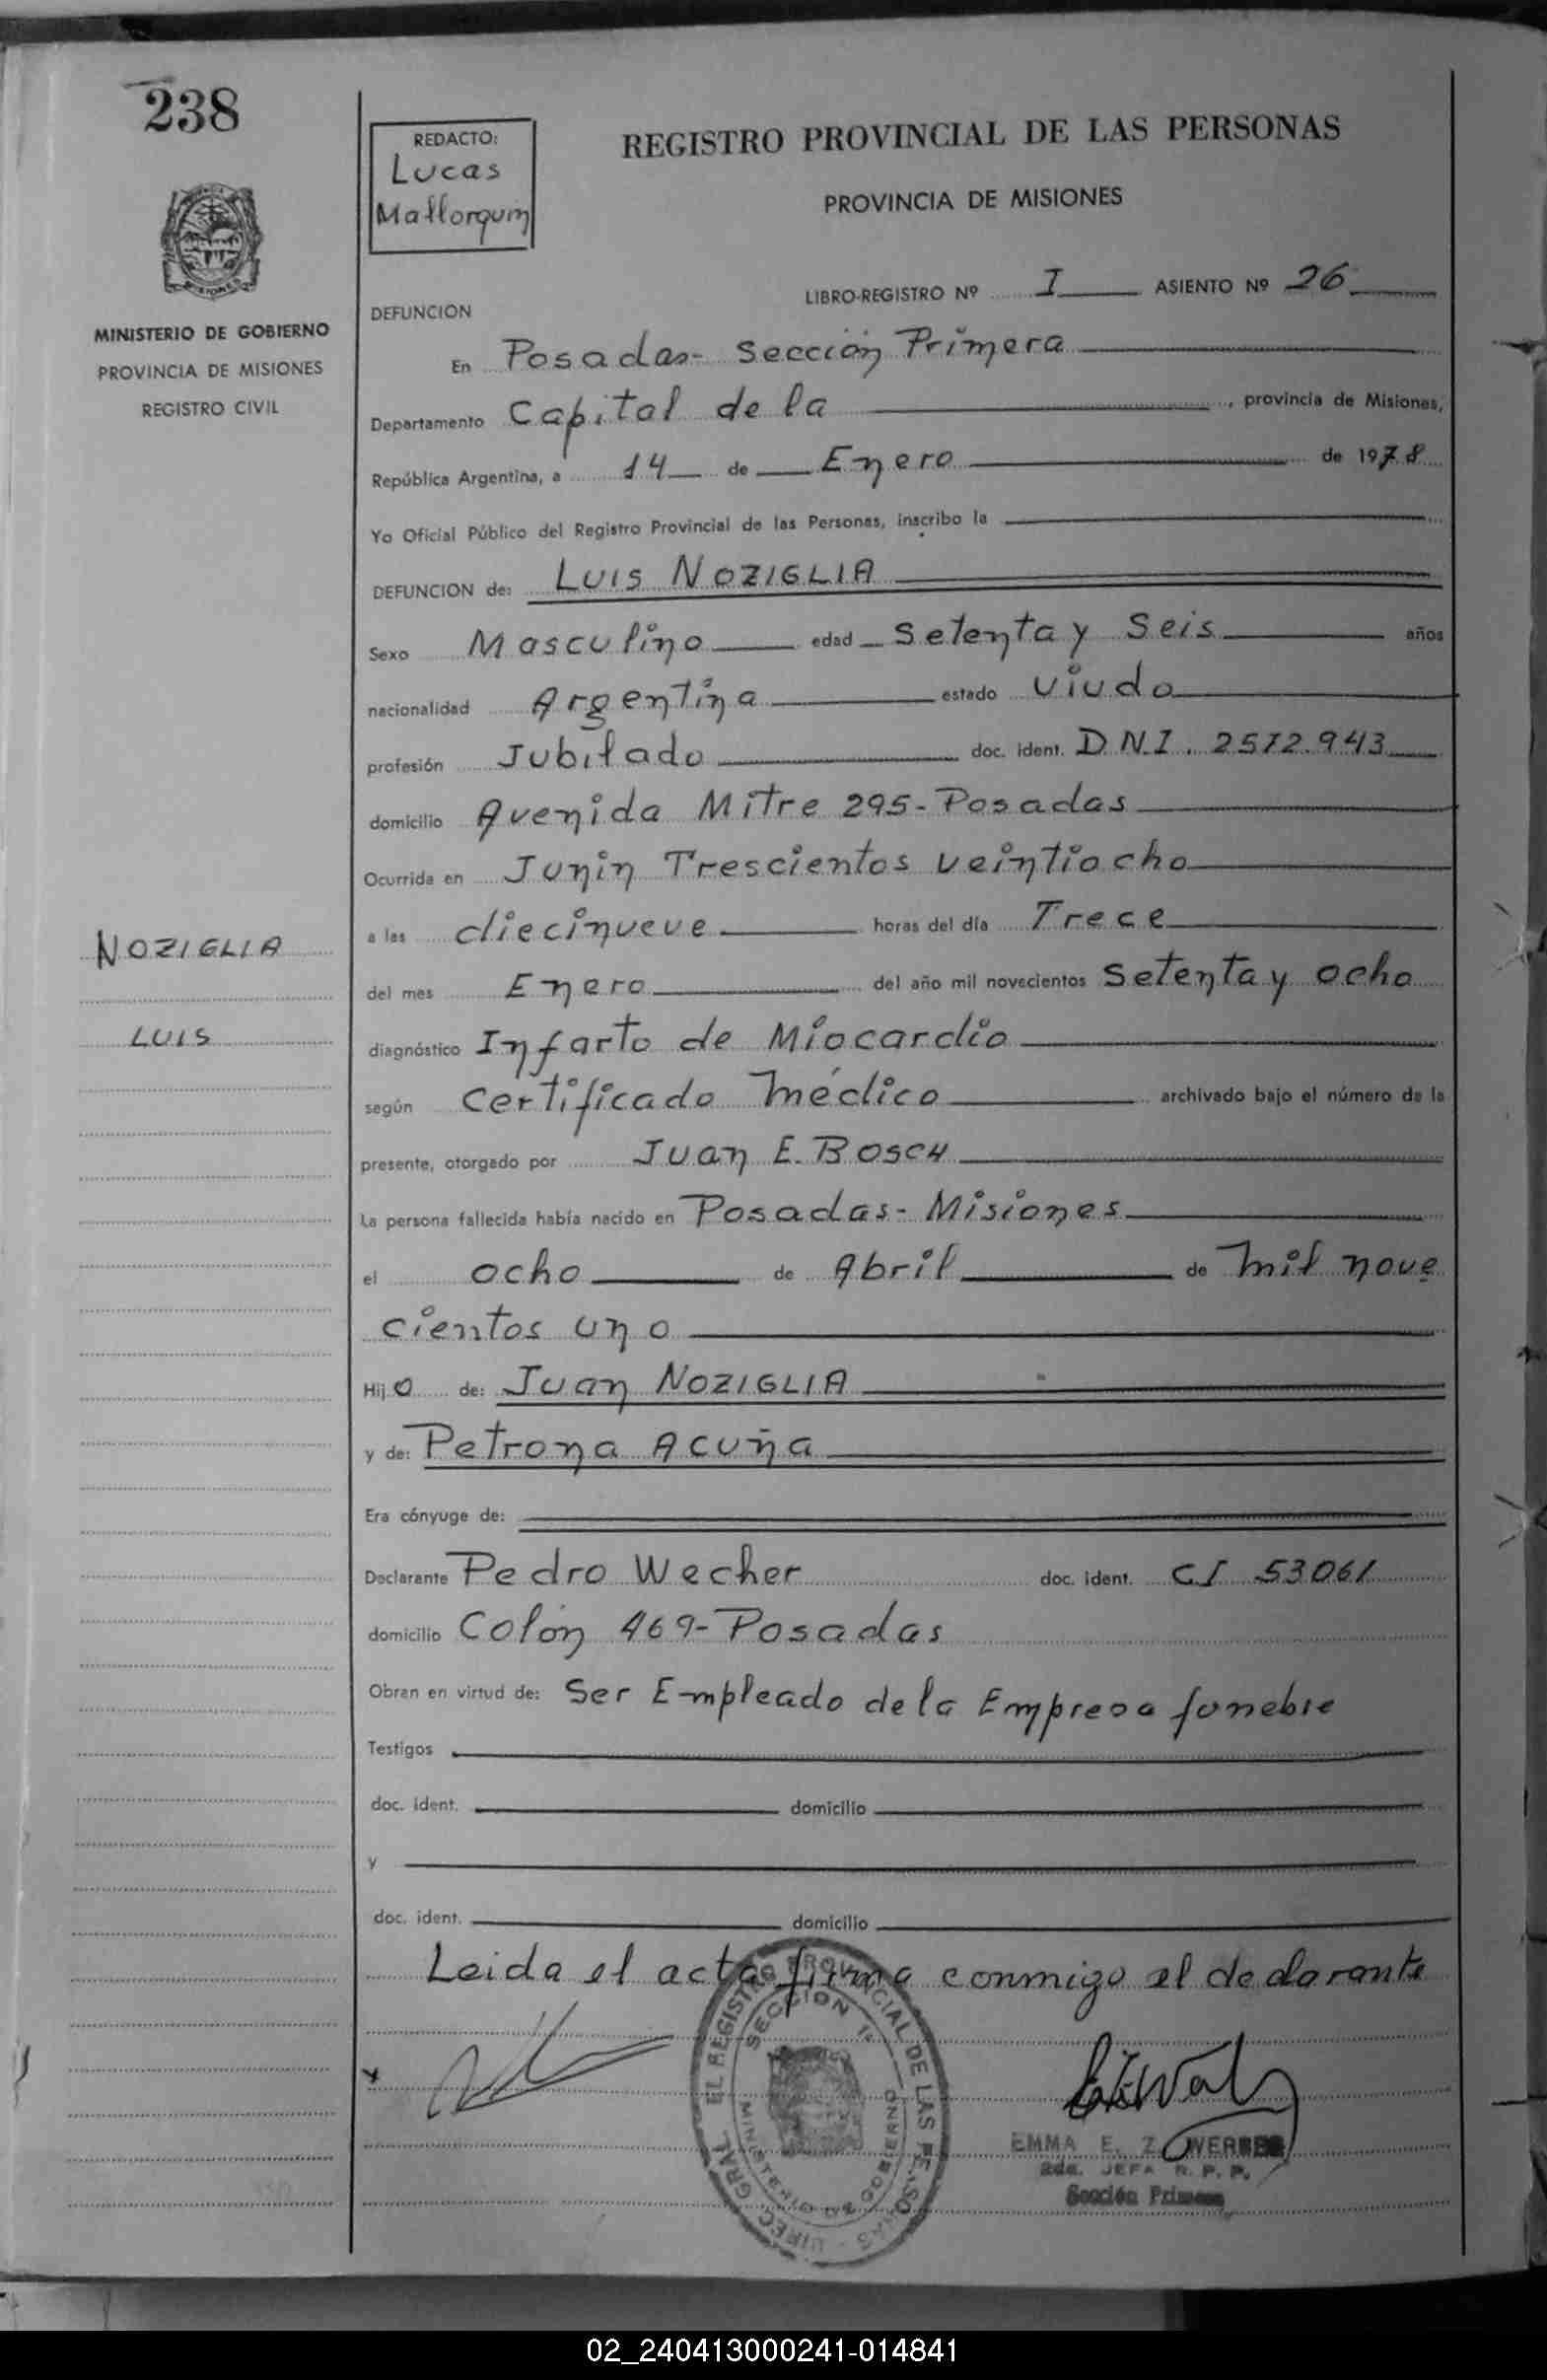 238
MINISTERIO DE GOBIERNO
PROVINCIA DE MISIONES
REGISTRO CIVIL
NOZIGLIA
LUIS
REDACTO:
Lucas
Mallorquin
REGISTRO PROVINCIAL DE LAS PERSONAS
PROVINCIA DE MISIONES
LIBRO-REGISTRO Nº I ASIENTO Nº 26
DEFUNCION
En Posadas- Sección Primera
Departamento Capital de la , provincia de Misiones,
República Argentina, a 14 de Enero de 1978
Yo Oficial Público del Registro Provincial de las Personas, inscribo la
DEFUNCION de: LUIS NOZIGLIA
Sexo Masculino edad Setenta y Seis años
nacionalidad Argentina estado Viudo
profesión Jubilado doc. ident. D.N.I. 2512.943
domicilio Avenida Mitre 295- Posadas
Ocurrida en Junin Trescientos veintiocho
a las diecinueve horas del día Trece
del mes Enero del año mil novecientos Setenta y ocho
diagnóstico Infarto de Miocardio
según Certificado Médico archivado bajo el número de la
presente, otorgado por Juan E. BOSCH
La persona fallecida había nacido en Posadas- Misiones
el ocho de Abril de mil nove
cientos uno
Hijo de: Juan NOZIGLIA
y de: Petrona Acuña
Era cónyuge de:
Declarante Pedro Wecher doc. ident. CI 53061
domicilio Colón 469- Posadas
Obran en virtud de: Ser Empleado de la Empresa funebre
Testigos
doc. ident. domicilio
y
doc. ident. domicilio
Leida el acta firma conmigo el declarante
REGISTRO PROVINCIAL DE LAS PERSONAS
SECCION 1ª
MINISTERIO DE GOBIERNO
EMMA E. Z. WERNER
2da. JEFA R. P. P.
Sección Primera
02_240413000241-014841